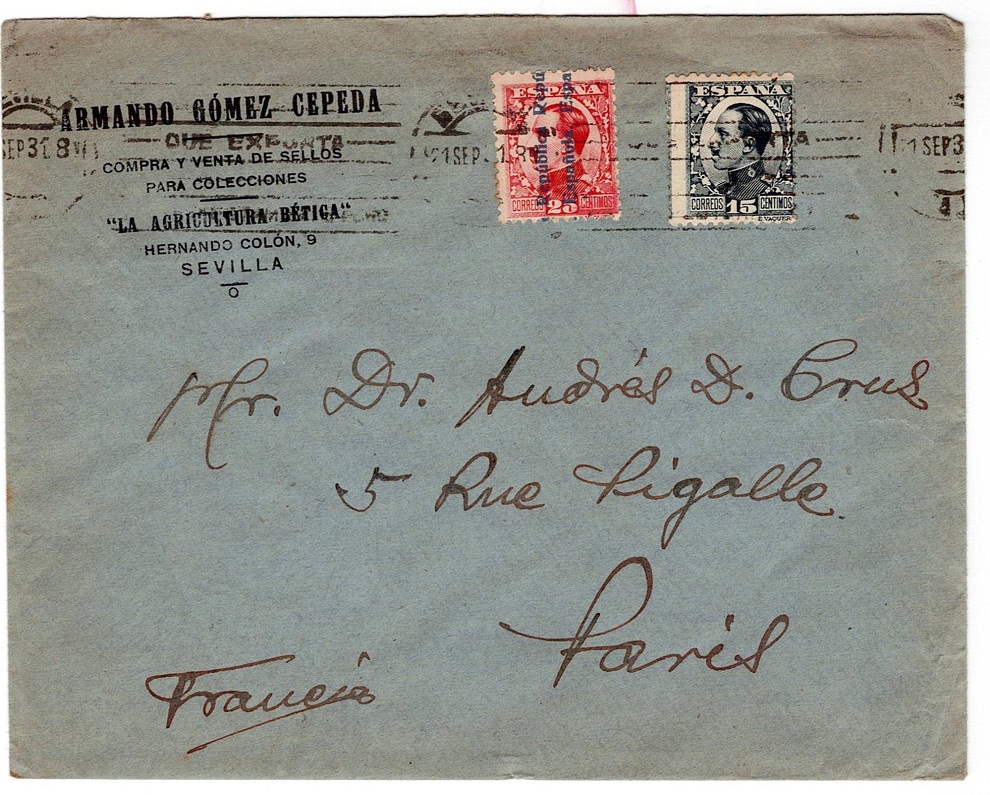 ARMANDO GÓMEZ CEPEDA
QUE EXPORTA
COMPRA Y VENTA DE SELLOS
PARA COLECCIONES
"LA AGRICULTURA BÉTICA"
HERNANDO COLÓN, 9
SEVILLA
SEP 31 8
ESPAÑA
República Repú
Española Espa
CORREOS 25 CÉNTIMOS
1 SEP 31 8
ESPAÑA
CORREOS 15 CÉNTIMOS
E. VAQUER
1 SEP 3
Mr. Dr. Andrés D. Crus
5 Rue Pigalle
Paris
Francia